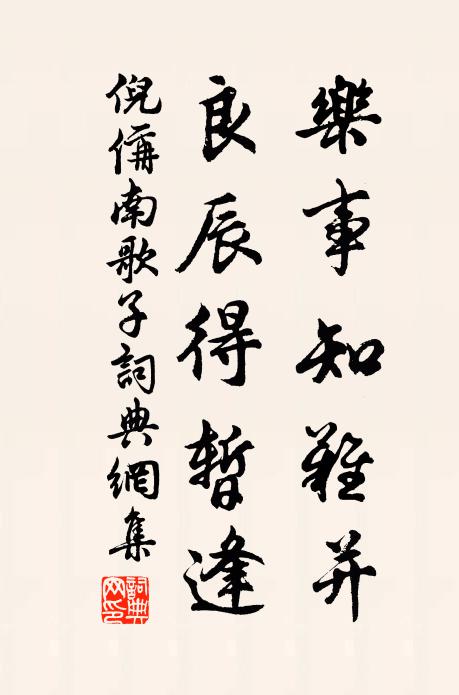 樂事知難并
良辰得暫逢
倪偁南歌子詞典網集
詞典网印